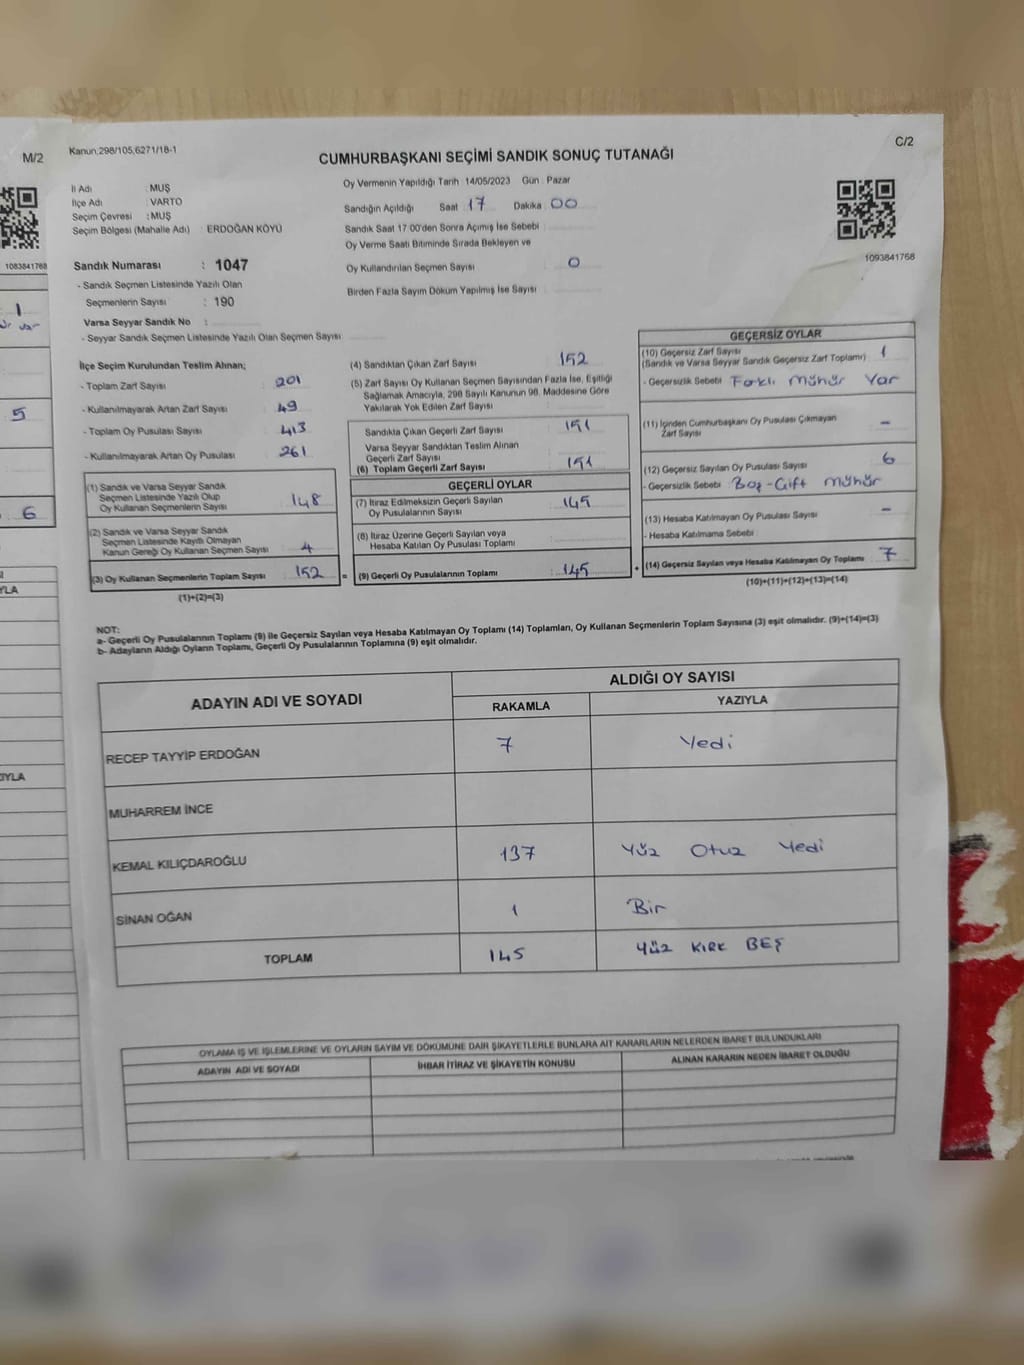 M/2
1083841768
1
5
6
YLA
ZIYLA
Kanun,298/105,6271/18-1
C/2
CUMHURBAŞKANI SEÇİMİ SANDIK SONUÇ TUTANAĞI
İl Adı : MUŞ
İlçe Adı : VARTO
Seçim Çevresi : MUŞ
Seçim Bölgesi (Mahalle Adı) : ERDOĞAN KÖYÜ
Sandık Numarası : 1047
- Sandık Seçmen Listesinde Yazılı Olan
Seçmenlerin Sayısı : 190
Varsa Seyyar Sandık No :
- Seyyar Sandık Seçmen Listesinde Yazılı Olan Seçmen Sayısı
Oy Vermenin Yapıldığı Tarih 14/05/2023 Gün : Pazar
Sandığın Açıldığı Saat 17 Dakika 00
Sandık Saat 17:00'den Sonra Açımış İse Sebebi
Oy Verme Saati Bitiminde Sırada Bekleyen ve
Oy Kullandırılan Seçmen Sayısı 0
Birden Fazla Sayım Döküm Yapılmış İse Sayısı
1093841768
İlçe Seçim Kurulundan Teslim Alınan;
- Toplam Zarf Sayısı 201
- Kullanılmayarak Artan Zarf Sayısı 49
- Toplam Oy Pusulası Sayısı 413
- Kullanılmayarak Artan Oy Pusulası 261
(1) Sandık ve Varsa Seyyar Sandık
Seçmen Listesinde Yazılı Olup
Oy Kullanan Seçmenlerin Sayısı 148
(2) Sandık ve Varsa Seyyar Sandık
Seçmen Listesinde Kayıtlı Olmayan
Kanun Gereği Oy Kullanan Seçmen Sayısı 4
(3) Oy Kullanan Seçmenlerin Toplam Sayısı 152 =
(1)+(2)=(3)
(4) Sandıktan Çıkan Zarf Sayısı 152
(5) Zarf Sayısı Oy Kullanan Seçmen Sayısından Fazla İse, Eşitliği
Sağlamak Amacıyla, 298 Sayılı Kanunun 98. Maddesine Göre
Yakılarak Yok Edilen Zarf Sayısı
Sandıkta Çıkan Geçerli Zarf Sayısı 151
Varsa Seyyar Sandıktan Teslim Alınan
Geçerli Zarf Sayısı
(6) Toplam Geçerli Zarf Sayısı 151
GEÇERLİ OYLAR
(7) İtiraz Edilmeksizin Geçerli Sayılan
Oy Pusulalarının Sayısı 145
(8) İtiraz Üzerine Geçerli Sayılan veya
Hesaba Katılan Oy Pusulası Toplamı
(9) Geçerli Oy Pusulalarının Toplamı 145 +
GEÇERSİZ OYLAR
(10) Geçersiz Zarf Sayısı
(Sandık ve Varsa Seyyar Sandık Geçersiz Zarf Toplamı) 1
- Geçersizlik Sebebi Farklı Mühür Var
(11) İçinden Cumhurbaşkanı Oy Pusulası Çıkmayan
Zarf Sayısı -
(12) Geçersiz Sayılan Oy Pusulası Sayısı 6
- Geçersizlik Sebebi Boş-Çift Mühür
(13) Hesaba Katılmayan Oy Pusulası Sayısı -
- Hesaba Katılmama Sebebi
(14) Geçersiz Sayılan veya Hesaba Katılmayan Oy Toplamı 7
(10)+(11)+(12)+(13)=(14)
NOT:
a- Geçerli Oy Pusulalarının Toplamı (9) ile Geçersiz Sayılan veya Hesaba Katılmayan Oy Toplamı (14) Toplamları, Oy Kullanan Seçmenlerin Toplam Sayısına (3) eşit olmalıdır. (9)+(14)=(3)
b- Adayların Aldığı Oyların Toplamı, Geçerli Oy Pusulalarının Toplamına (9) eşit olmalıdır.
ADAYIN ADI VE SOYADI
ALDIĞI OY SAYISI
RAKAMLA YAZIYLA
RECEP TAYYİP ERDOĞAN 7 Yedi
MUHARREM İNCE
KEMAL KILIÇDAROĞLU 137 Yüz Otuz Yedi
SİNAN OĞAN 1 Bir
TOPLAM 145 Yüz KIRK BEŞ
OYLAMA İŞ VE İŞLEMLERİNE VE OYLARIN SAYIM VE DÖKÜMÜNE DAİR ŞİKAYETLERLE BUNLARA AİT KARARLARIN NELERDEN İBARET BULUNDUKLARI
ADAYIN ADI VE SOYADI İHBAR İTİRAZ VE ŞİKAYETİN KONUSU ALINAN KARARIN NEDEN İBARET OLDUĞU